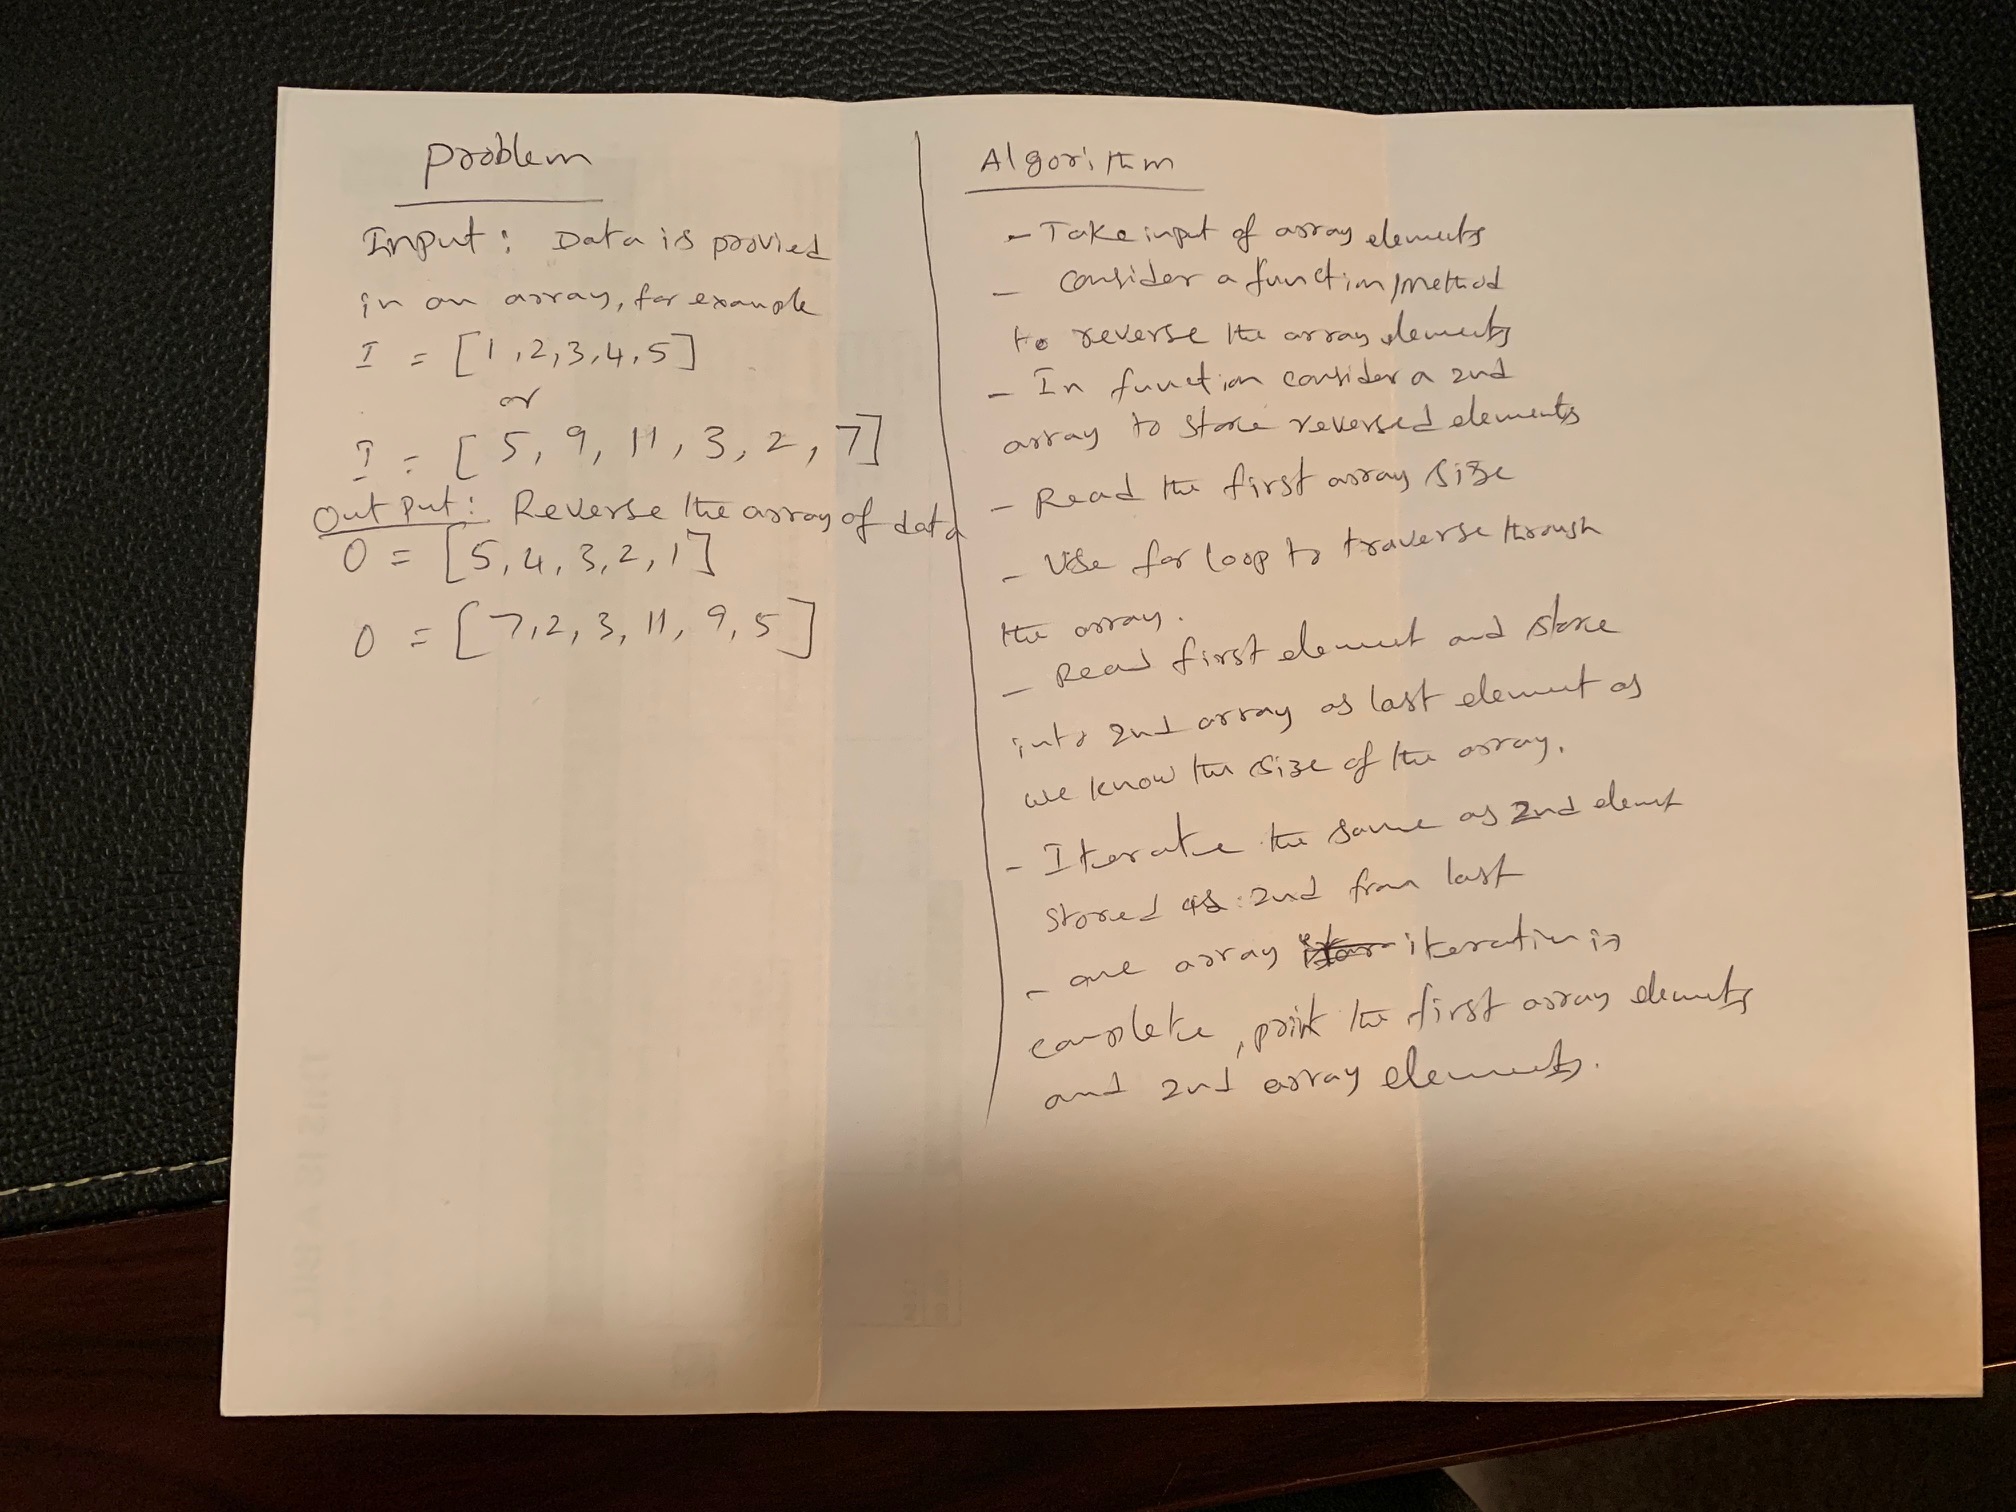 Problem
Input: Data is provied
in an array, for example
I = [1,2,3,4,5]
or
I = [5, 9, 11, 3, 2, 7]
Output: Reverse the array of data
O = [5,4,3,2,1]
O = [7,2,3,11,9,5]
Algorithm
- Take input of array elements
- consider a function/method
to reverse the array elements
- In function consider a 2nd
array to store reversed elements
- Read the first array size
- Use for loop to traverse through
the array.
- Read first element and store
into 2nd array as last element as
we know the size of the array.
- Iterate the same as 2nd elemt
stored as 2nd from last
- one array iteration is
complete, print the first array elements
and 2nd array elements.
THIS IS A BILL